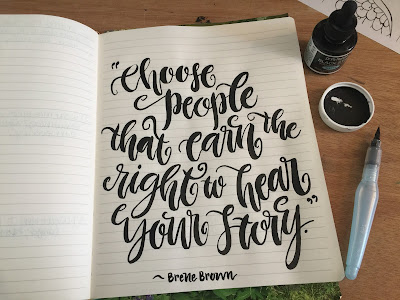 "Choose
people
that earn the
right to hear
your story."
~ Brene Brown